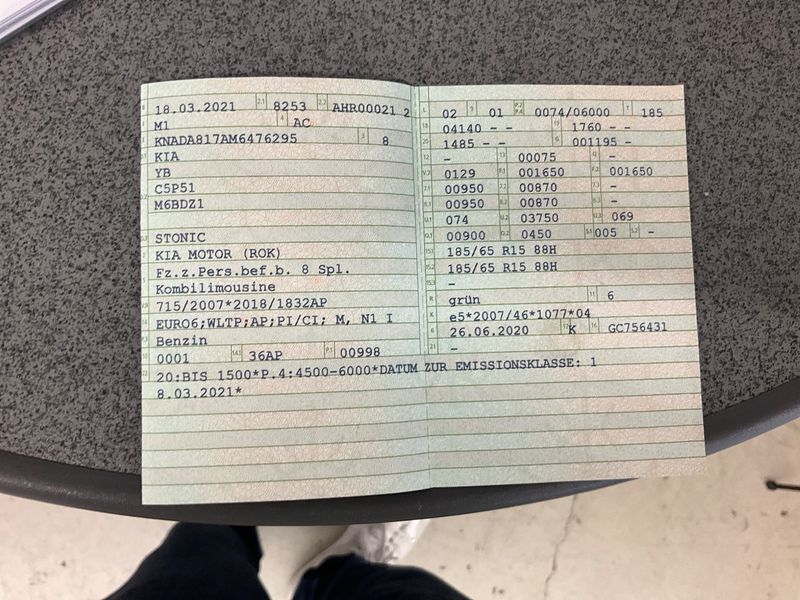 B 18.03.2021 2.1 8253 2.2 AHR00021 2
M1 4 AC
KNADA817AM6476295 3 8
KIA
YB
C5P51
M6BDZ1
STONIC
KIA MOTOR (ROK)
Fz.z.Pers.bef.b. 8 Spl.
Kombilimousine
715/2007*2018/1832AP
EURO6;WLTP;AP;PI/CI; M, N1 I
Benzin
0001 14.1 36AP P.1 00998
L 02 9 01 P.2 P.4 0074/06000 T 185
18 04140 - - 19 1760 - -
20 1485 - - G 001195 -
12 - 13 00075 Q -
V.7 0129 F.1 001650 F.2 001650
7.1 00950 7.2 00870 7.3 -
8.1 00950 8.2 00870 8.3 -
U.1 074 U.2 03750 U.3 069
O.1 00900 O.2 0450 S.1 005 S.2 -
15.1 185/65 R15 88H
15.2 185/65 R15 88H
15.3 -
R grün 11 6
K e5*2007/46*1077*04
6 26.06.2020 17 K 16 GC756431
21 -
22 20:BIS 1500*P.4:4500-6000*DATUM ZUR EMISSIONSKLASSE: 1
8.03.2021*